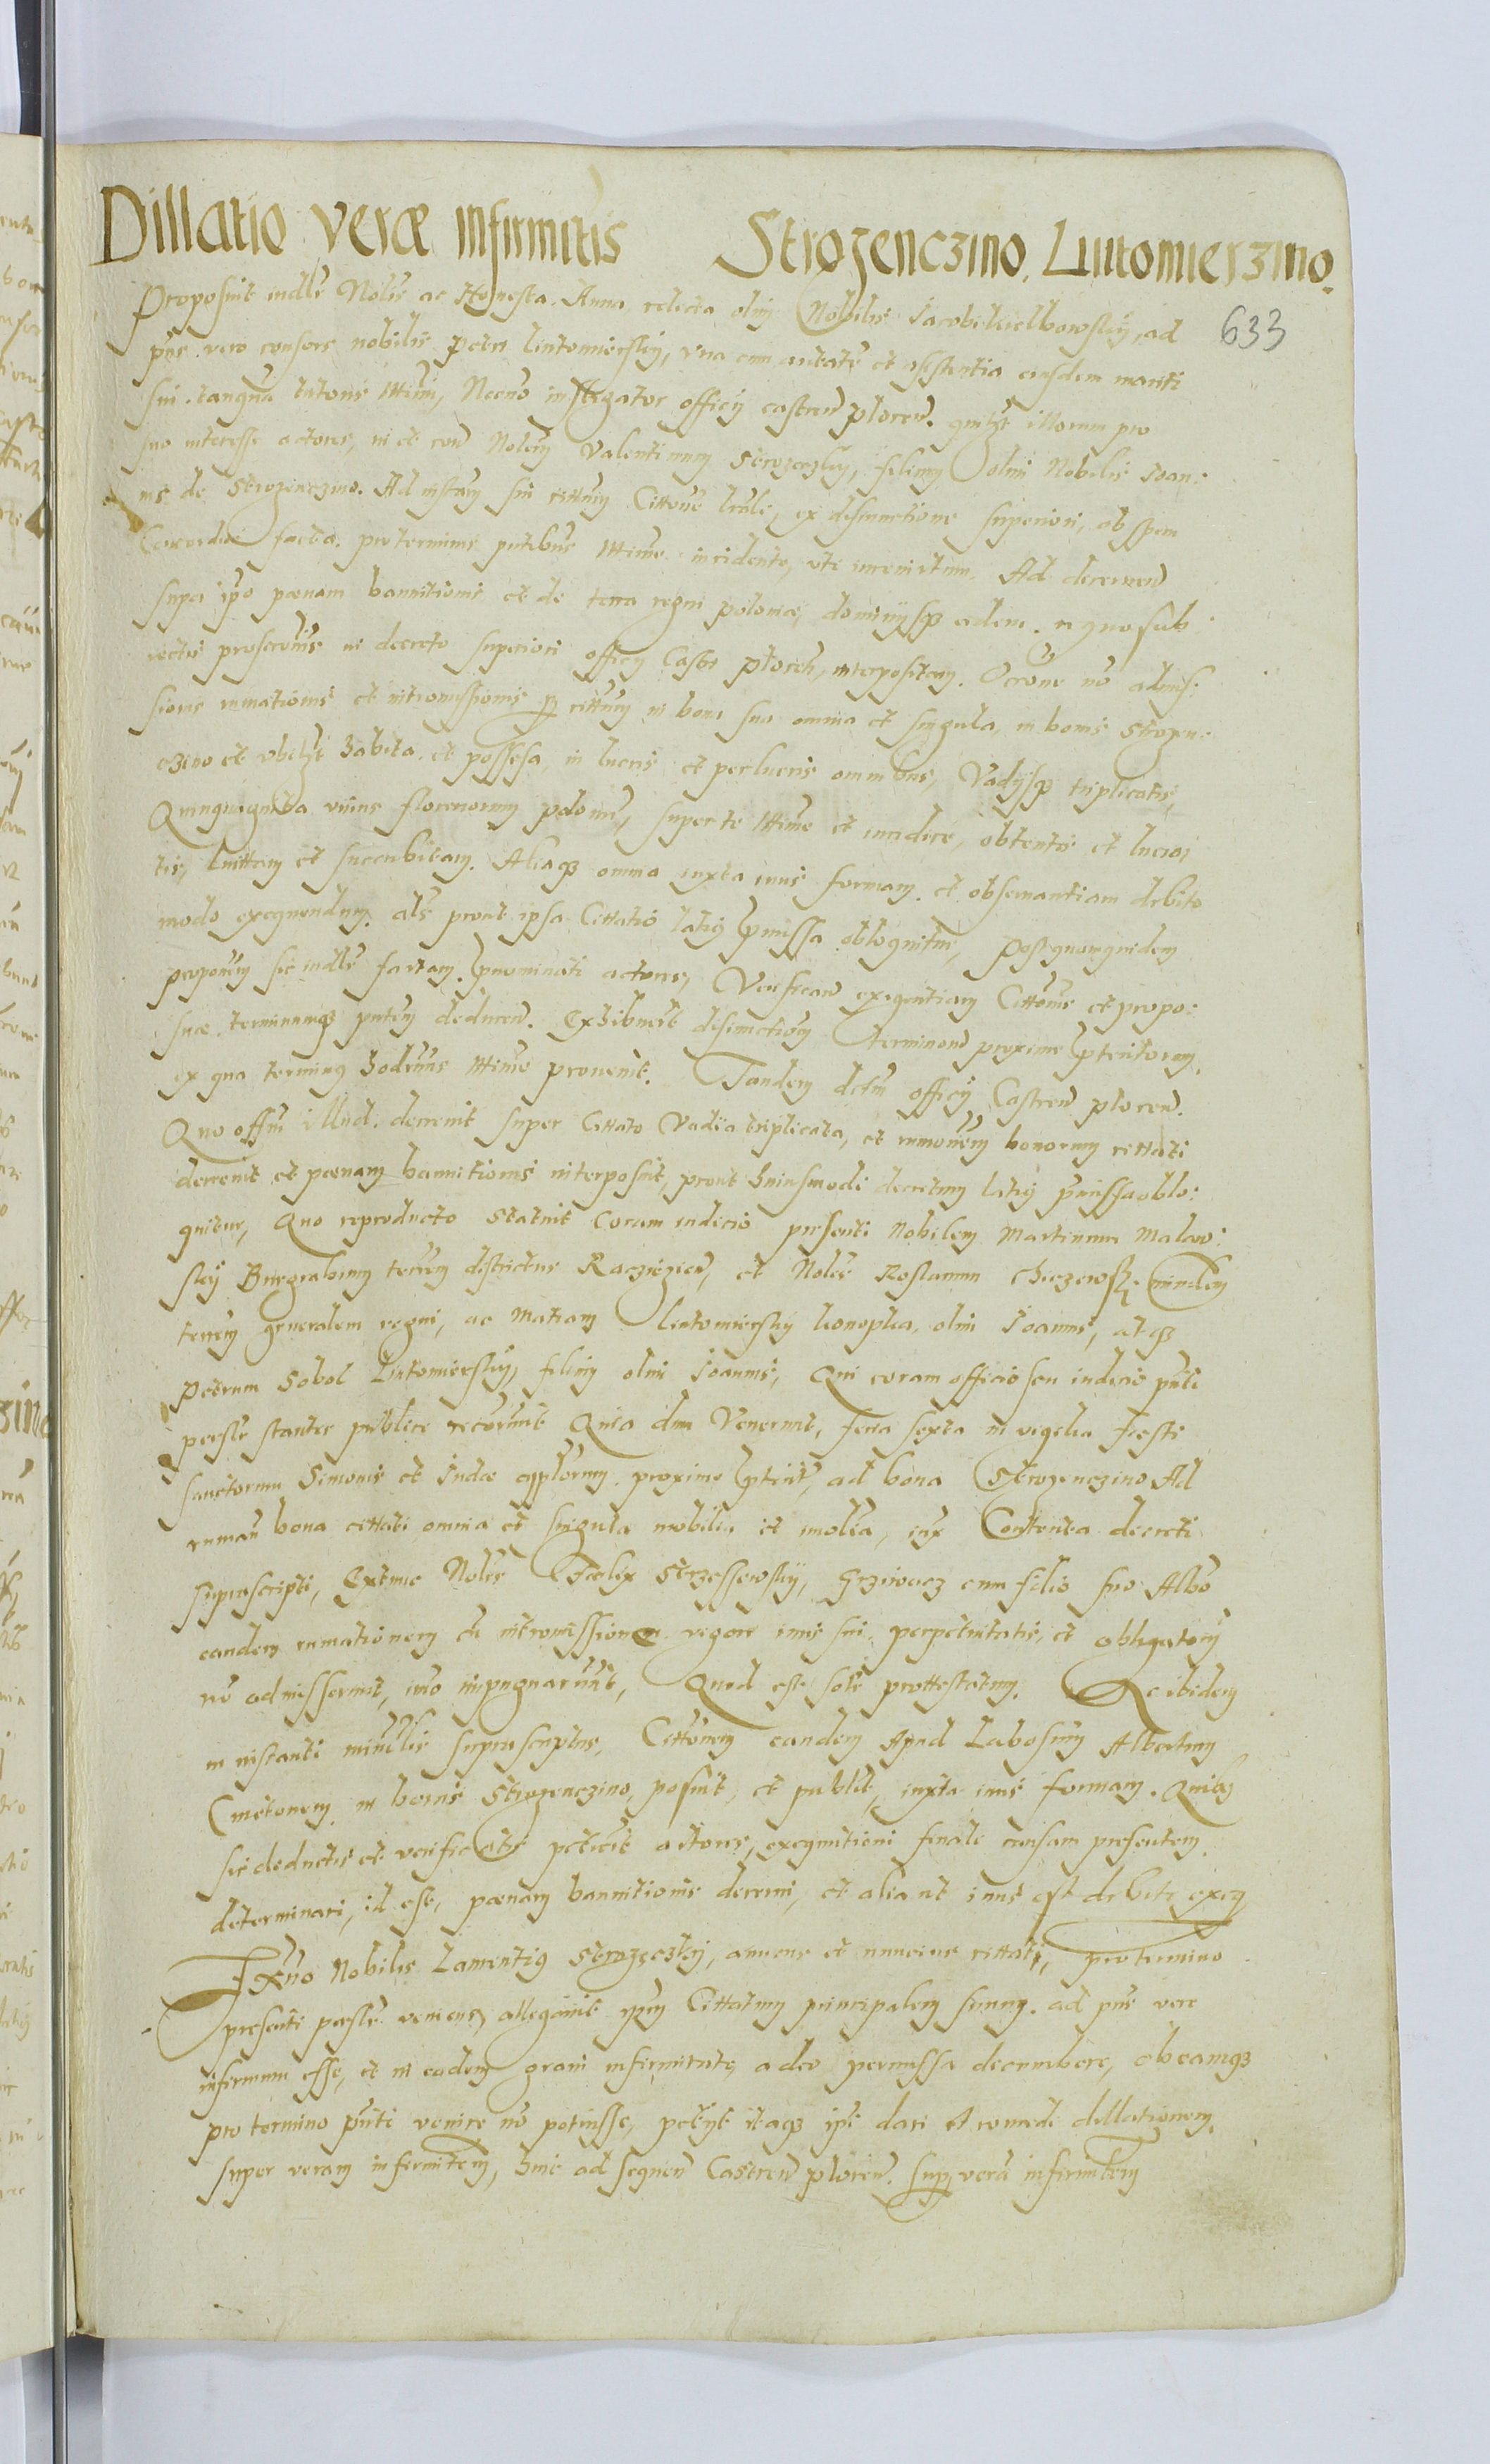 Dillatio veræ infirmitis Strozenczino. Lutomierzino.
633
Proposuit iudlr Nolis ac Honesta. Anna relicta olim Nobilis Jacobi Kielbowskÿ, ad
pñs vero consors nobilis Petri Lutomierskÿ, vna cum autatẽ et assistentia eiusdem mariti
sui. tanquã tutoris ltimi, Necno instigator officÿ castreñ ploceñ. quilzt illorum pro
suo interesse actores, in et coñ Nobilem Valentinum Strozeczkÿ, filium olim Nobilis Joan:
nis de Strozenczino. Ad instam sui cittum Cittone lrale, ex disiunctione superiori, ob spem
Concordie facta. pro terminis putibus ltime incidente, vti inveniatum. Ad decerneñ
super ipo poenam bannitionis et de terra regni polonie, dominÿsq3 eidem regno sub
iectis proscronis in decreto superiori officÿ Castr ploceñ, interpositam. Occone nõ admis:
sionis rumationis et intromissionis per cittum in bona sua omnia et singula, in bonis Strozen:
czino et vbilzt habita. et possessa, in lucris et perlucris omnibus, Vadÿsq3 triplicatis,
Quinquaginta vnius florenorum polonica, super te ltime et iuridice, obtentis et lucra
tis, luittam et succubitam. Aliaq3 omnia iuxta iuris formam. et observantiam debito
modo exequendum. als prout ipsa Cittatio latiÿ pmissa obloquitur, Postquamquidem
proponem sic iudlr factam. prenominati actores, Verificañ exigentiam Cittonis et propo:
suæ terminumq3 putem deduceñ. Exhibuert disiunctionem terminorũ proxime preteritorum,
ex qua terminus hodiernus ltime provenit. Tandem dctm officÿ Castreñ ploceñ.
Quo offm illud. decrevit super Cittato Vadia triplicata, et rumonem bonorum cittati
decrevit et poenam bannitionis interposuit, prout huiusmodi decretum latiÿ pmissa oblo:
quitur, Quo reproducto Statuit Coram iudicio presenti Nobilem Martinum Malow:
skÿ Burgrabium terrem districtus Raczięzieñ, et Nolẽ Roslanum Chiczewskj ministlem
terrem generalem regni, ac Matiam Lutomierskÿ Konopka. olim Joannis, atq3
Petrum Sobol Lutomierskÿ, filium olim Joannis, Qui coram officio seu iudicio pñti
persolr stantes publice recorunt Quia dum Venerunt, feria sexta in vigilia Festi
sanctorum Simonis et Judæ applorum. proxime ptrit, ad bona Strozenczino Ad
rumañ bona cittati omnia et singula mobilia et imobla, iux Contenta decreti
supra scripti, Extunc Nolis Foelix Strzessewskÿ, Grziwacz cum filio suo Albo
eandem rumationem et intromissionem vigore iuris sui perpetuitatis, et obligatorÿ
nõ admisserunt, imo impugnarunt, Quod est solr prottestatum. Ac ibidem
in instanti ministlis suprascriptus, Cittonem eandem Apud Labosum Albertum
Cmetonem in bonis Strozenczino, posuit, et publt, iuxta iuris formam. Quibus
sic deductis et verificatis petierunt actores, exequutioni finali causam presentem
determinari, id est, poenam bannitionis decerni, et alia ut iuris est debite exeq
Ex aduo Nobilis Laurentius Strozeczkÿ, amicus et nuncius cittati, pro termino
presenti persolr veniens, allegavit ipm Cittatum principalem suum. ad pñs vere
infirmum esse, et in eadem gravi infirmitate, adeo permissa decumbere, ob eamq3
pro termino pñti venire nõ potuisse, petÿt itaq3 ipi dari et concedi dillationem
super veram infirmitem, hinc ad sequeñ Castreñ ploceñ. super verã infirmitem